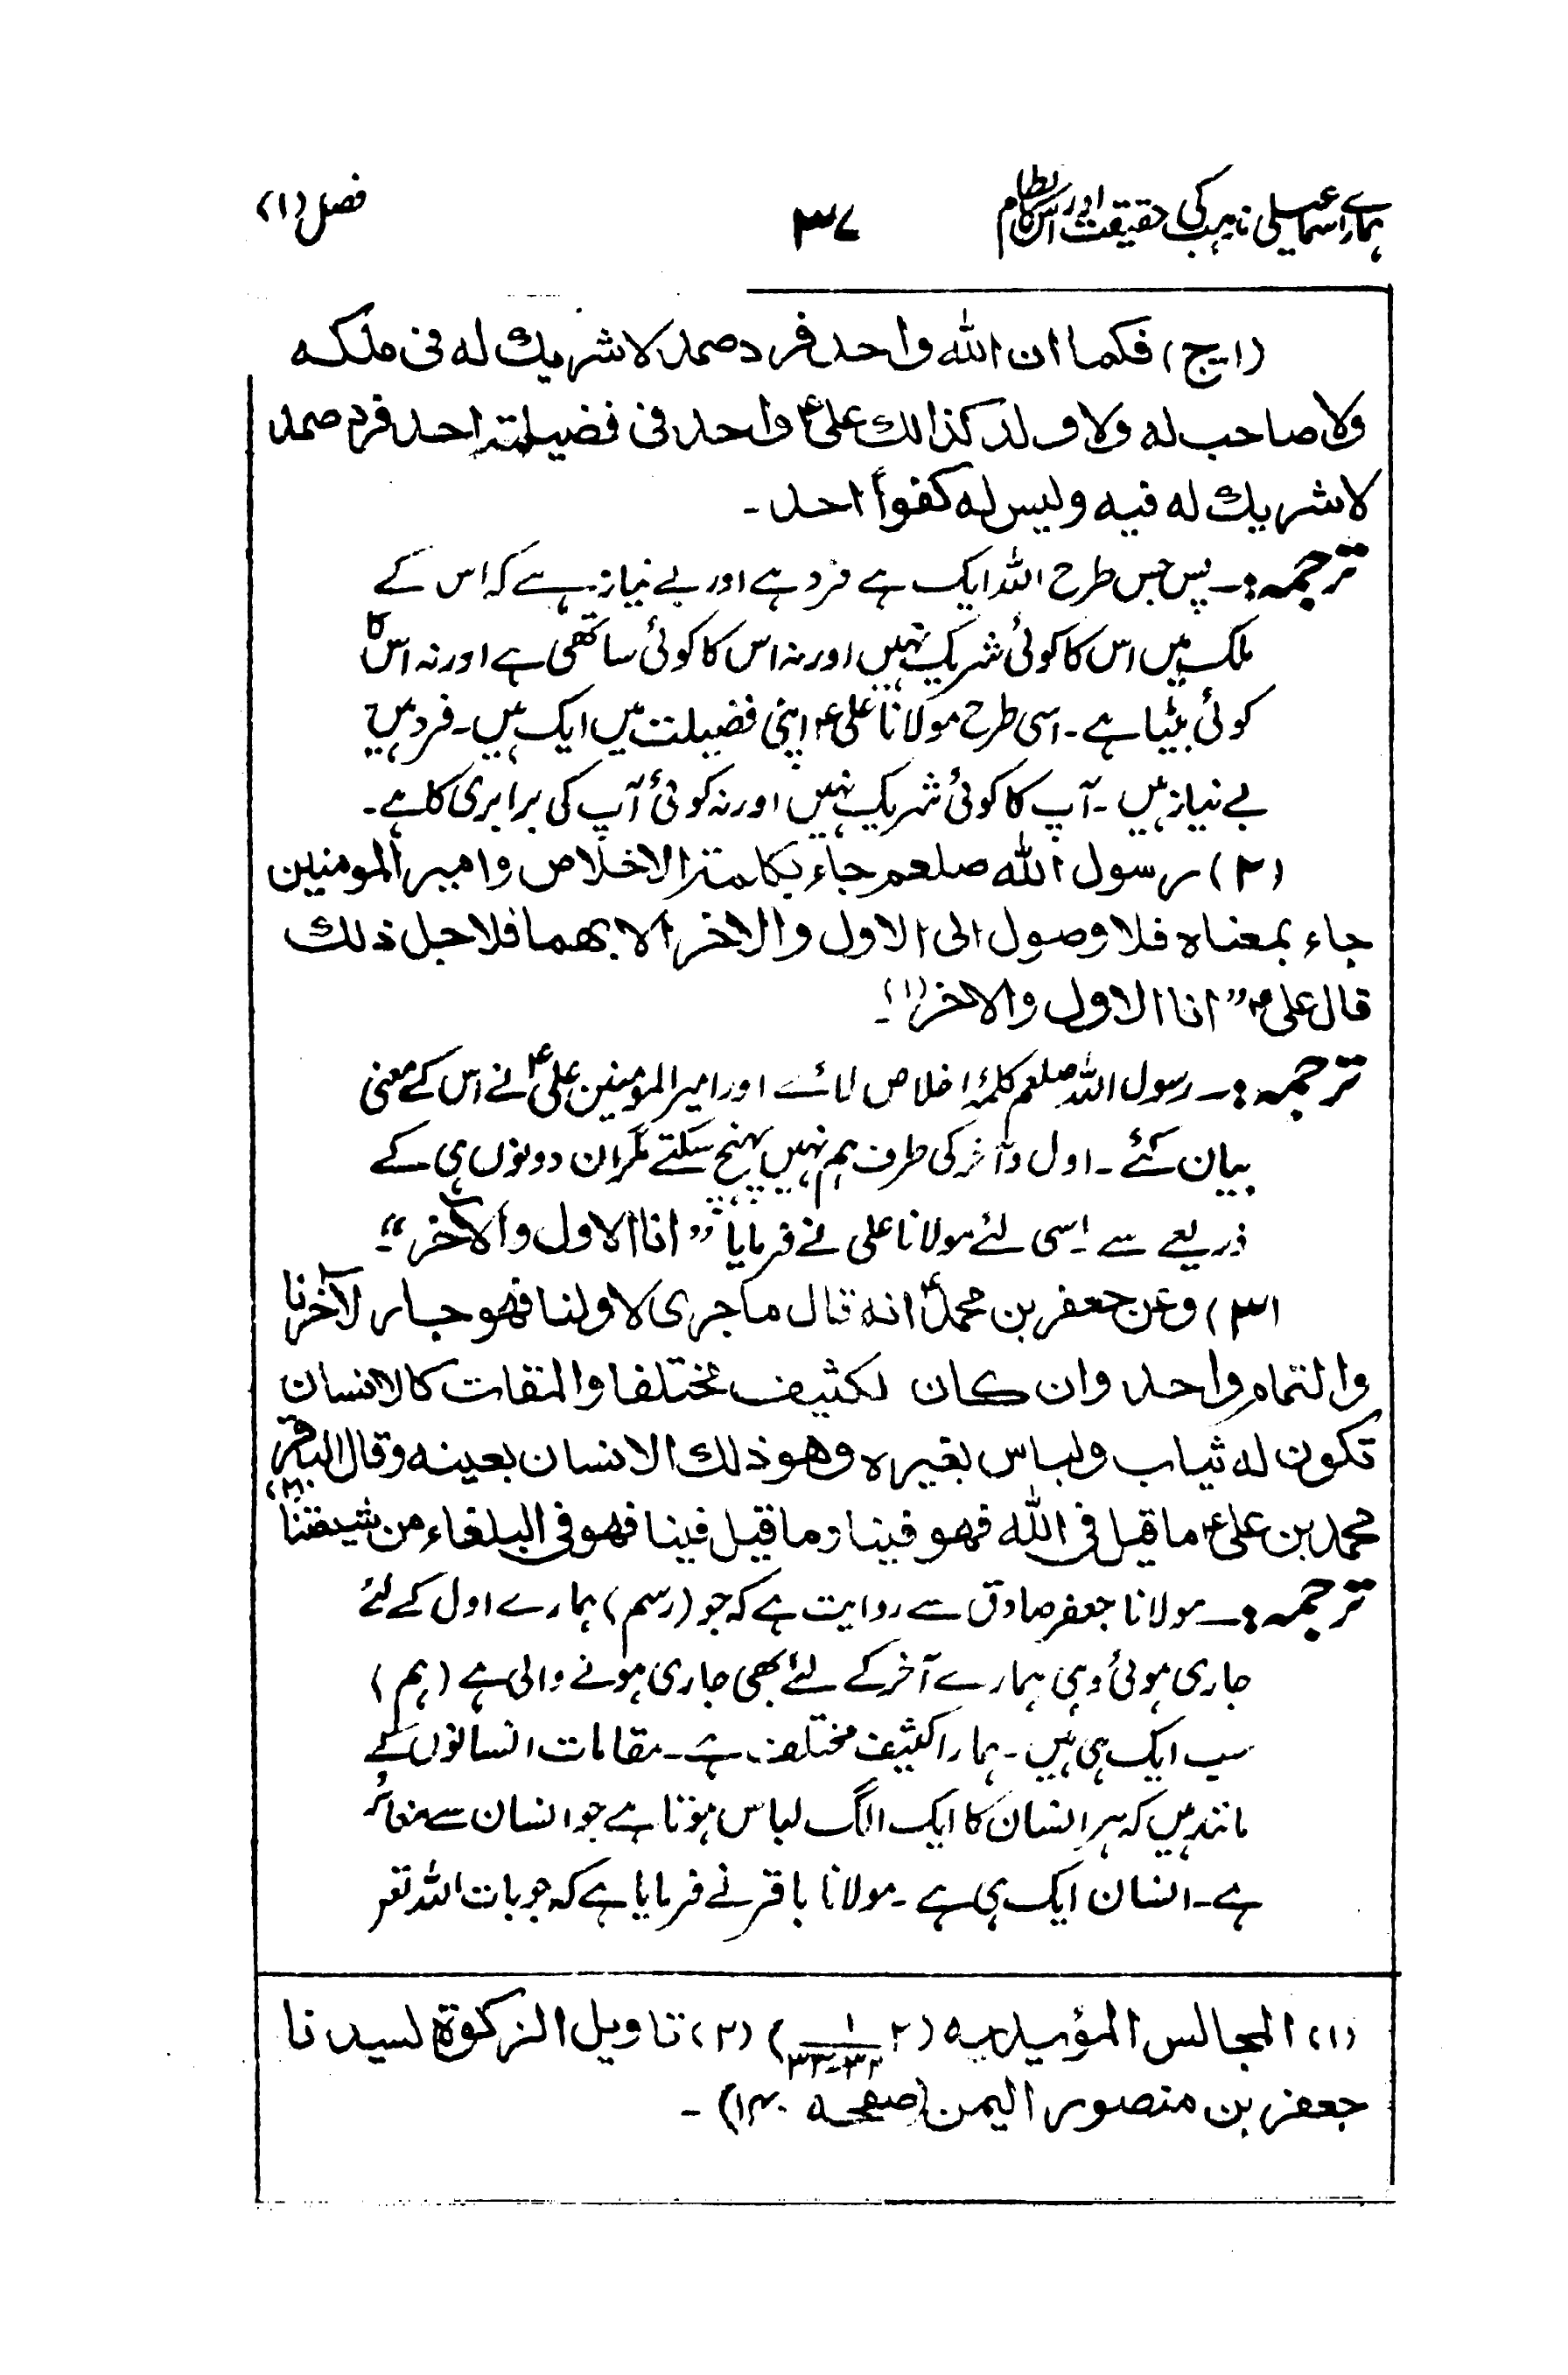 ہمارے اسماعیلی مذہب کی حقیقت اور اس کا نظام ۳۷ فصل (۱)
(ا۔ج) فکما ان اللہ واحد فرد صمد لا شریک لہ فی ملکہ
ولا صاحب لہ ولا ولد کذالک علیؑ واحد فی فضیلتہ احد فرد صمد
لا شریک لہ فیہ ولیس لہ کفواً احد ۔
ترجمہ:۔ پس جس طرح اللہ ایک ہے فرد ہے اور بے نیاز ہے کہ اس کے
ملک میں اس کا کوئی شریک نہیں اور نہ اس کا کوئی ساتھی ہے اور نہ اس کا
کوئی بیٹا ہے ۔ اسی طرح مولانا علیؑ اپنی فضیلت میں ایک ہیں ۔ فرد ہیں
بے نیاز ہیں ۔ آپ کا کوئی شریک نہیں اور نہ کوئی آپ کی برابری کا ہے ۔
(۲) رسول اللہ صلعم جاء بکلمتہ الاخلاص وامیر المومنین
جاء بمعناہ فلا وصول الی الاول والاخر الا بھما فلاجل ذلک
قال علیؑ ”انا الاول والاخر“(۱)۔
ترجمہ:۔ رسول اللہ صلعم کلمۂ اخلاص لائے اور امیر المومنین علیؑ نے اس کے معنی
بیان کئے ۔ اول و آخر کی طرف ہم نہیں پہنچ سکتے مگر ان دونوں ہی کے
ذریعے سے ۔ اسی لئے مولانا علی نے فرمایا ”انا الاول والآخر“۔
(۳) وعن جعفر بن محمدؑ انہ قال ما جری لاولنا فھو جار لآخرنا
والتمام واحد وان کان لکثیف مختلفا والمقات کالانسان
تکون لہ ثیاب ولباس بغیرہ وھو ذلک الانسان بعینہ وقال الباقر
محمد بن علیؑ ما قیل فی اللہ فھو فینا وما قیل فینا فھو فی البلغاء من شیعتنا(۲)
ترجمہ:۔ مولانا جعفر صادق سے روایت ہے کہ جو (رسم) ہمارے اول کے لئے
جاری ہوئی وہی ہمارے آخر کے لئے بھی جاری ہونے والی ہے (ہم)
سب ایک ہی ہیں ۔ ہمارا کثیف مختلف ہے ۔ مقامات انسانوں کے
مانند ہیں کہ ہر انسان کا ایک الگ لباس ہوتا ہے جو انسان سے مغائر
ہے ۔ انسان ایک ہی ہے ۔ مولانا باقر نے فرمایا ہے کہ جو بات اللہ تعہ
(۱) المجالس المؤیدیہ (۲ ۱/۳۲-۳۳) (۲) تاویل الزکوۃ لسیدنا
جعفر بن منصور الیمن (صفحہ ۱۴۰) ۔